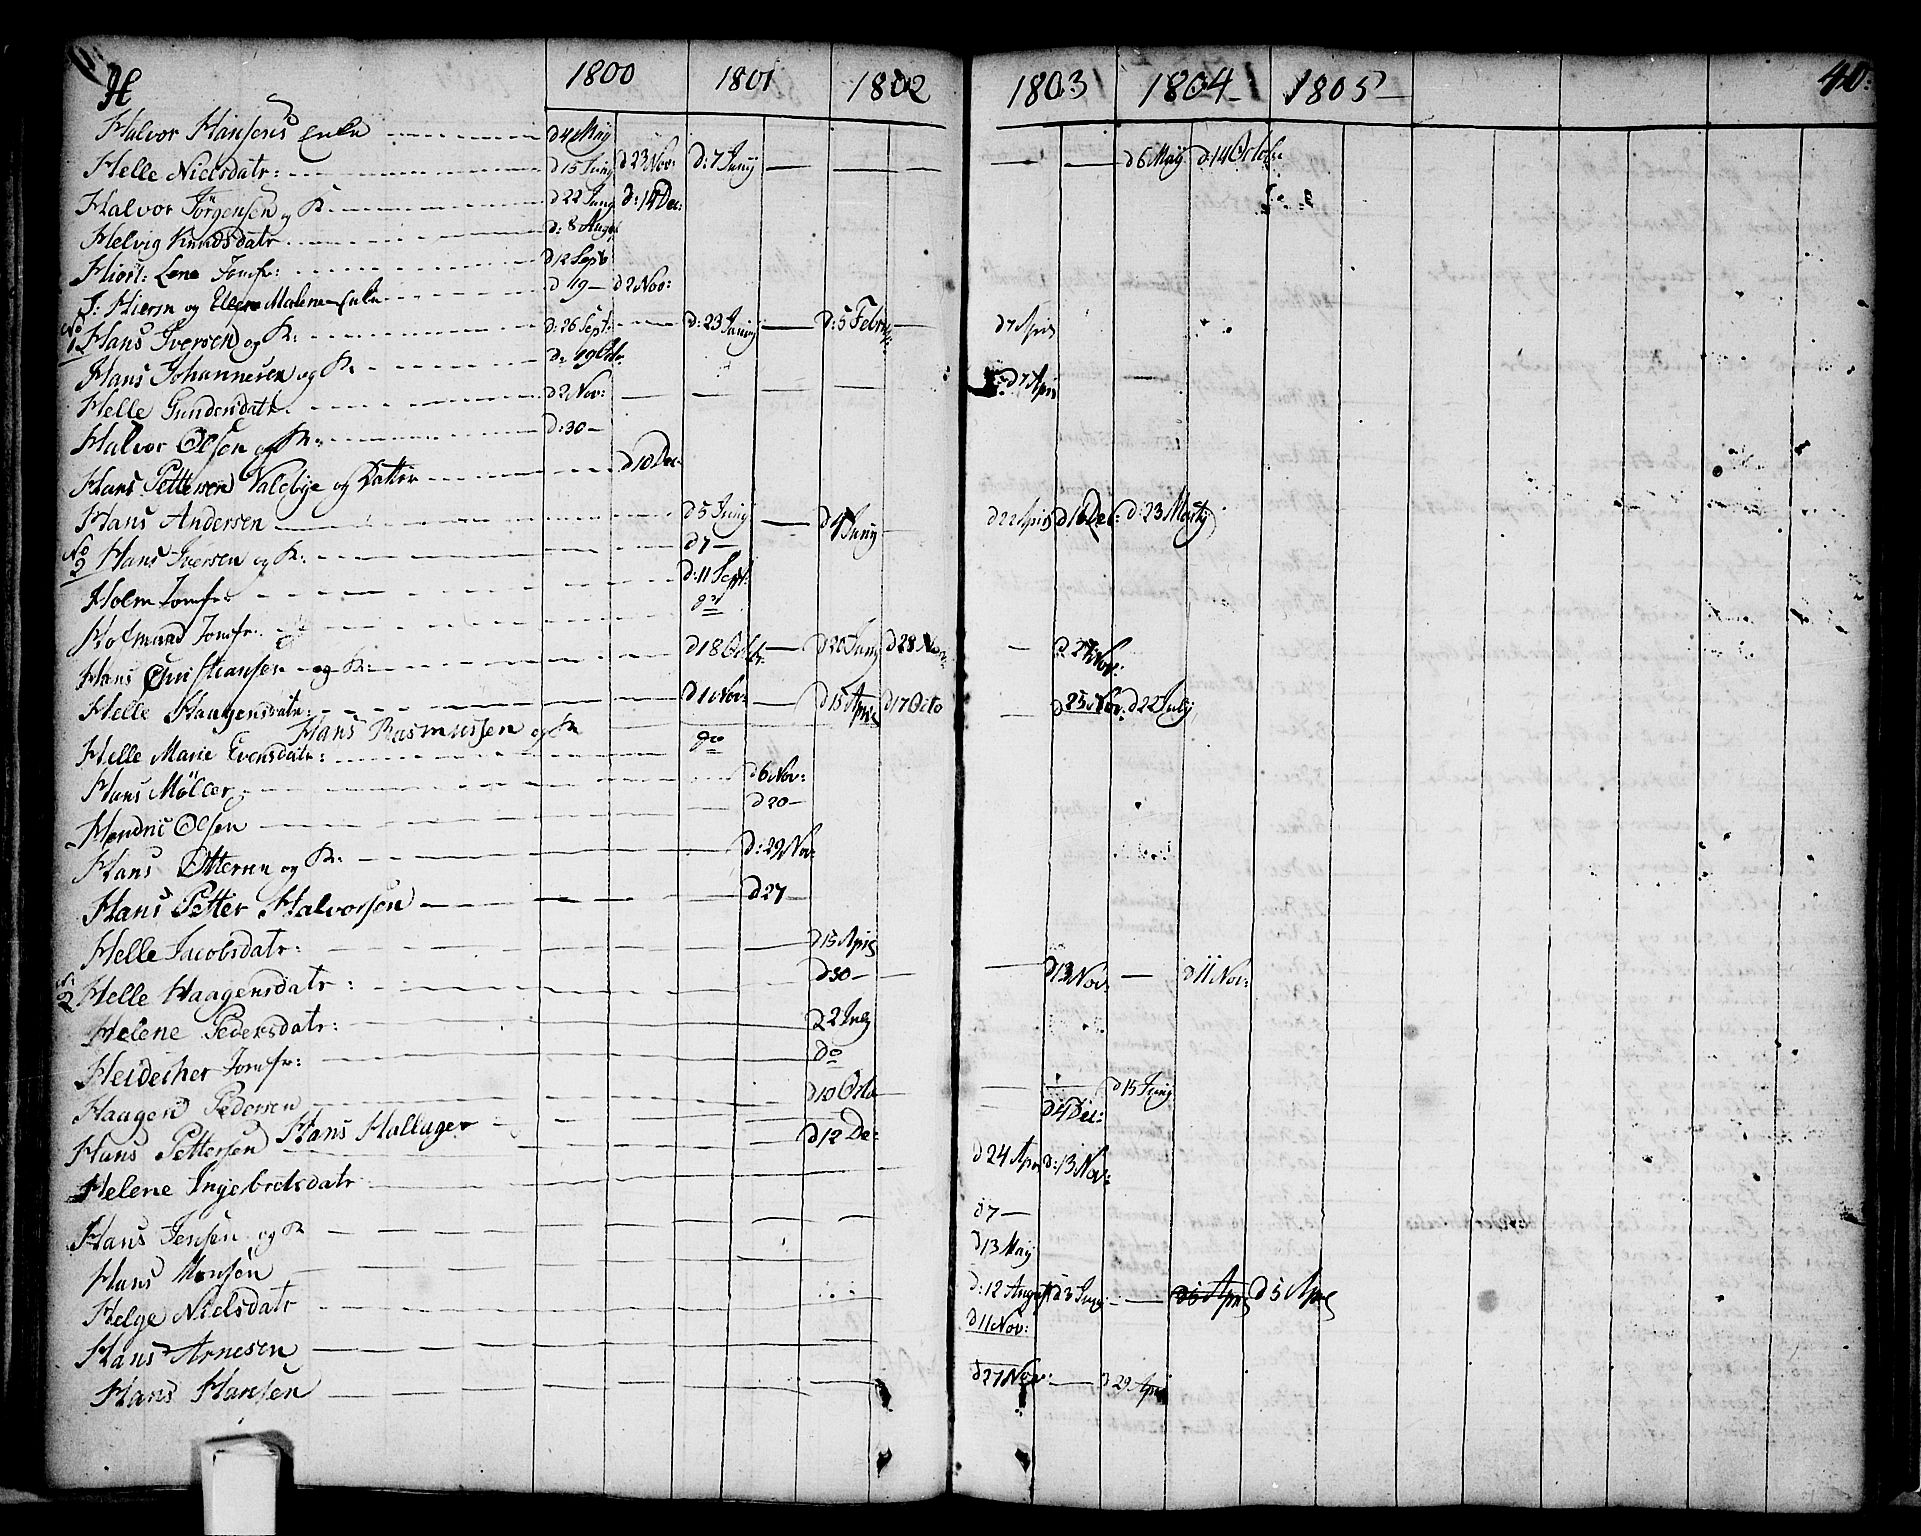 H 1800 1801 1802 1803 1804 1805 40.
Halvor Hansens Enke d 4 May
Helle Nielsdatr: d 15 Junij d 23 Nov: d: 7 Junij d 6 Maij d 14 Octobr
Halvor Jörgensen og K. d 22 Junij d: 14 Dec:
Helvig Knudsdatr d: 8 Augst
Hiort: Lene Jomfr: d 12 Septr
J: Hierm og Malene Enke d 19 – d 2 Nov:
No 1 Hans Iversen og K: d: 26 Sept: d: 23 Junij d: 5 Febru d 7 Apr
Hans Johannesen og K d: 19 Octr d 7 Apr
Helle Gundersdatr. d 2 Nov:
Halvor Olsen og K: d: 30 –
Hans Pettersen Valebye og Datter d 10 Dec
Hans Andersen d 5 Junij d 4 Junij d 22 Apr d 16 Dec: d: 23 Martij
No 2 Hans Iversen og K: d 7 –
Holm Jomfr: d: 11 Sept:
Jomfr: do
Hans Christiansen og K: d 18 Octbr d 20 Junij d 28 Nov d 27 Nov:
Helle Haagensdatr: d 1 Nov: d 15 Apr d 17 Octo d 25 Nov: d 22 July
Hans Rasmussen og K
Helle Marie Evensdatr: do
Hans Möller d 6 Nov:
Hendric Olsen d 20 –
Hans Ottersen og K: d: 29 Nov:
Hans Petter Halvorsen d 27 –
Helle Jacobsdatr: d 15 Apr
No 2 Helle Haagensdatr: d 30 – d 13 Nov d 11 Nov:
Helene Pedersdatr: 22 July
Heidecher Jomfr: do
Haagen Pedersen d 10 Octo d 15 Junij
Hans Pettersen Hans Hallager d 12 De: d 4 Dec:
Helene Ingebretsdatr d 24 Apr d: 13 Nov:
Hans Jensen og K d 7 –
Hans Monsen d 13 Maij
Helge Nielsdatr d: 12 August d 3 Junij d 5 Apr d 5 Apr
Hans Arnesen d 11 Nov:
Hans Hansen d 27 Nov: d 29 Apr